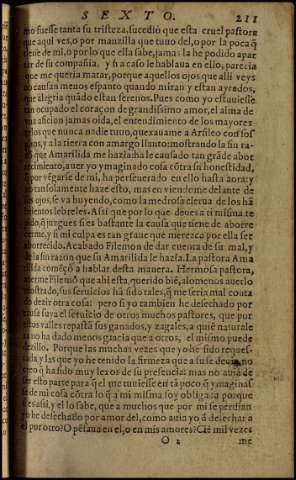 SEXTO. 211
mo fuesse tanta su tristeza, sucedió que esta cruel pastora
que aqui ves, o por manzilla que tuuo del, o por la poca q̃
tiene de mi, o por lo que ella sabe, jamas la he podido apar
tar de su compañia. y si a caso le hablaua en ello, parecia
que me queria matar, porque aquellos ojos que alli veys
no causan menos espanto quando miran y estan ayrados,
que alegria quãdo estan serenos. Pues como yo estuuiesse
tan ocupado el coraçon de grandissimo amor, el alma de
vna aficion jamas oida, el entendimiento de los mayores
zelos que nunca nadie tuuo, quexauame a Arsileo con sos
piros, y a la tierra con amargo llanto: mostrando la sin ra
zõ que Amarilida me hazia: ha le causado tan grãde abor
recimiento, auer yo ymaginado cosa cõtra su honestidad,
q̃ por vẽgarse de mi, ha perseuerado en ello hasta aora: y
no tansolamente haze esto, mas en viendome delante de
sus ojos, se va huyendo, como la medrosa cierua de los hã
brientos lebreles. Assi que por lo que deues a ti misma te
pido, q̃ juzgues si es bastante la causa que tiene de aborre
cerme, y si mi culpa es tan graue que merezca por ella ser
aborrecido. Acabado Filemon de dar cuenta de su mal, y
de la sin razon que su Amarilida le hazia. La pastora Ama
rilida comẽçó a hablar desta manera. Hermosa pastora,
auerme Filemõ que ahi esta, querido biẽ, alomenos auerlo
mostrado, sus seruicios hã sido tales, q̃ me seria mal conta
do dezir otra cosa: pero si yo tambien he desechado por
causa suya el seruicio de otros muchos pastores, que por
estos valles repastã sus ganados, y zagales, a quiẽ naturale
za no ha dado menos gracia que a otros, el mismo puede
dezillo. Porque las muchas vezes que yo he sido reques-
tada y las que yo he tenido la firmeza que a su fe deuia, no
creo q̃ ha sido muy lexos de su presencia: mas no auia de
ser esto parte para q̃ el me tuuiesse en tã poco q̃ ymaginas
se de mi cosa cõtra lo q̃ a mi misma soy obligara porque
si es assi, y el lo sabe, que a muchos que por mi se perdian
yo he desechado por amor del, como auia yo d̃ desechar a
el por otro? O pẽsaua en el, o en mis amores? Ciẽ mil vezes
O 2 me